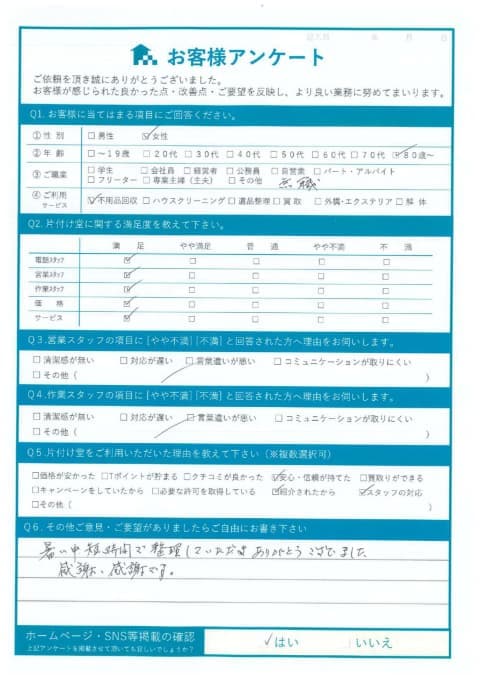 記入日 年 月 日
お客様アンケート
ご依頼を頂き誠にありがとうございました。
お客様が感じられた良かった点・改善点・ご要望を反映し、より良い業務に努めてまいります。
Q1. お客様に当てはまる項目にご回答ください。
①性 別 □男性 ☑女性
②年 齢 □～19歳 □20代 □30代 □40代 □50代 □60代 □70代 ☑80歳～
③ご職業 □学生 □会社員 □経営者 □公務員 □自営業 □パート・アルバイト
□フリーター □専業主婦（主夫） □その他 無職
④ご利用サービス ☑不用品回収 □ハウスクリーニング □遺品整理 □買取 □外構・エクステリア □解体
Q2. 片付け堂に関する満足度を教えて下さい。
満 足 やや満足 普 通 やや不満 不 満
電話スタッフ ☑ □ □ □ □
営業スタッフ ☑ □ □ □ □
作業スタッフ ☑ □ □ □ □
価 格 ☑ □ □ □ □
サービス ☑ □ □ □ □
Q3. 営業スタッフの項目に [やや不満] [不満] と回答された方へ理由をお伺いします。
□清潔感が無い □対応が遅い □言葉遣いが悪い □コミュニケーションが取りにくい
□その他（ ）
Q4. 作業スタッフの項目に [やや不満] [不満] と回答された方へ理由をお伺いします。
□清潔感が無い □対応が遅い □言葉遣いが悪い □コミュニケーションが取りにくい
□その他（ ）
Q5. 片付け堂をご利用いただいた理由を教えて下さい（※複数選択可）
□価格が安かった □Tポイントが貯まる □クチコミが良かった ☑安心・信頼が持てた □買取りができる
□キャンペーンをしていたから □必要な許可を取得している ☑紹介されたから ☑スタッフの対応
□その他（ ）
Q6. その他ご意見・ご要望がありましたらご自由にお書き下さい
暑い中短時間で整理していただきありがとうございました
感謝、感謝です。
ホームページ・SNS等掲載の確認 ✓はい □いいえ
上記アンケートを掲載させて頂いても宜しいでしょうか？